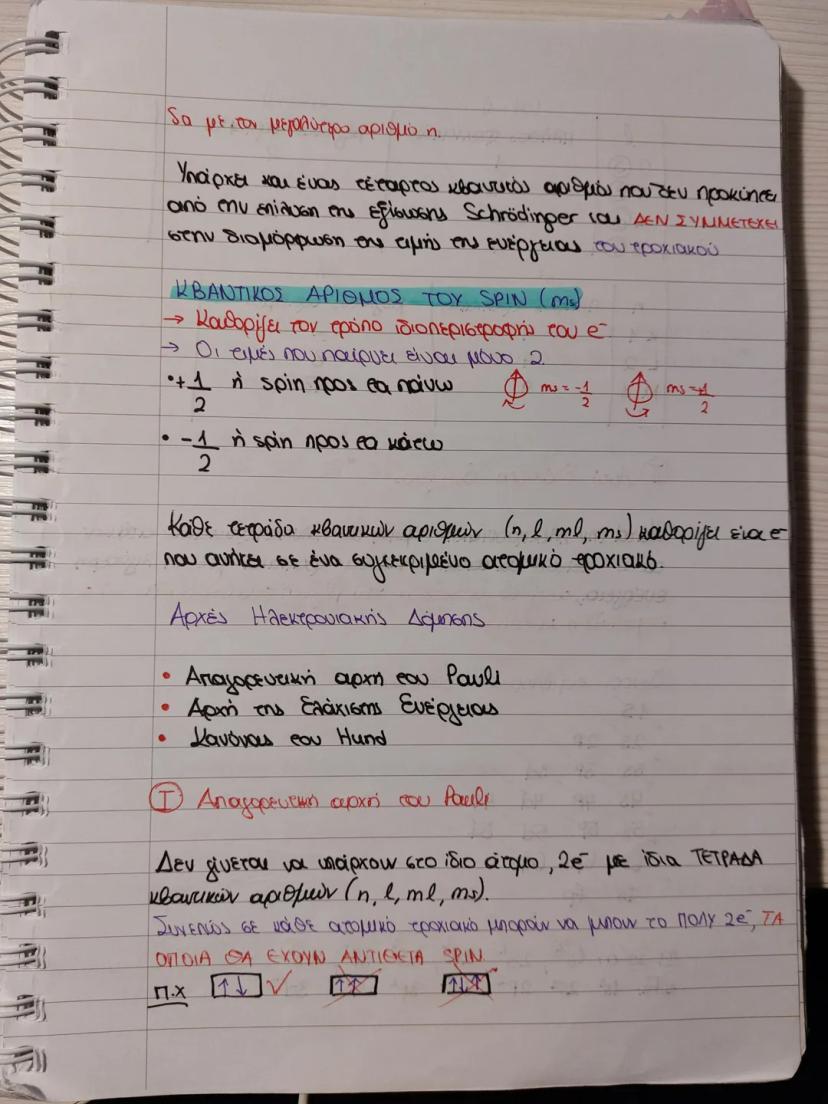 δα με τον μεγαλύτερο αριθμό n.
Υπάρχει και ένας τέταρτος κβαντικός αριθμός που δεν προκύπτει
από την επίλυση της εξίσωσης Schrödinger και ΔΕΝ ΣΥΜΜΕΤΕΧΕΙ
στην διαμόρφωση της τιμής της ενέργειας του τροχιακού
ΚΒΑΝΤΙΚΟΣ ΑΡΙΘΜΟΣ ΤΟΥ SPIN (ms)
→ Καθορίζει τον τρόπο ιδιοπεριστροφής του e⁻
→ Οι τιμές που παίρνει είναι μόνο 2
• +1/2 ή spin προς τα πάνω ms = -1/2 ms =
• -1/2 ή spin προς τα κάτω
Κάθε τετράδα κβαντικών αριθμών (n, l, ml, ms) καθορίζει ένα e⁻
που ανήκει σε ένα συγκεκριμένο ατομικό τροχιακό.
Αρχές Ηλεκτρονιακής Δόμησης
• Απαγορευτική αρχή του Pauli
• Αρχή της Ελάχιστης Ενέργειας
• Κανόνας του Hund
Ι Απαγορευτική αρχή του Pauli
Δεν γίνεται να υπάρχουν στο ίδιο άτομο, 2e⁻ με ίδια ΤΕΤΡΑΔΑ
κβαντικών αριθμών (n, l, ml, ms).
Συνεπώς σε κάθε ατομικό τροχιακό μπορούν να μπουν το ΠΟΛΥ 2e⁻, ΤΑ
ΟΠΟΙΑ ΘΑ ΕΧΟΥΝ ΑΝΤΙΘΕΤΑ SPIN.
Π.Χ ↑↓ ✓ ↑↑ ↑↓↑